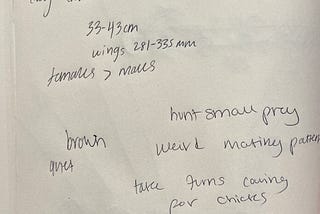 33-43cm
wings 281-335mm
females > males
hunt small prey
brown
weird mating patters
quiet
take turns caring
for chicks